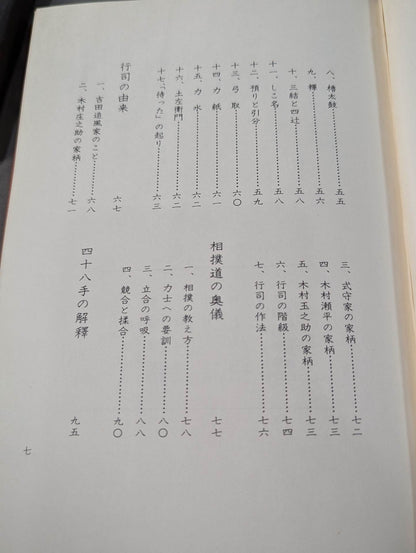 八、櫓太鼓……………五五
九、褌……………五六
十、三結と四辻……………五八
十一、しこ名……………五八
十二、預りと引分……………五九
十三、弓 取……………六〇
十四、力 紙……………六一
十五、力 水……………六二
十六、土左衛門……………六二
十七、「待った」の起り……………六三
行司の由来 六七
一、吉田追風家のこと……………六八
二、木村庄之助の家柄……………七一
三、式守家の家柄……………七二
四、木村瀬平の家柄……………七三
五、木村玉之助の家柄……………七三
六、行司の階級……………七四
七、行司の作法……………七六
相撲道の奥儀 七七
一、相撲の教え方……………七八
二、力士への要訓……………八〇
三、立合の呼吸……………八八
四、競合と揉合……………九〇
四十八手の解釋 九五
七